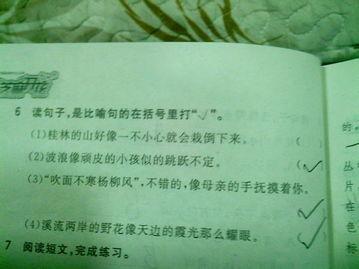 6 读句子,是比喻句的在括号里打“✓”。
(1)桂林的山好像一不小心就会栽倒下来。 ( )
(2)波浪像顽皮的小孩似的跳跃不定。
(3)“吹面不寒杨柳风”,不错的,像母亲的手抚摸着你。
(4)溪流两岸的野花像天边的霞光那么耀眼。
7 阅读短文,完成练习。